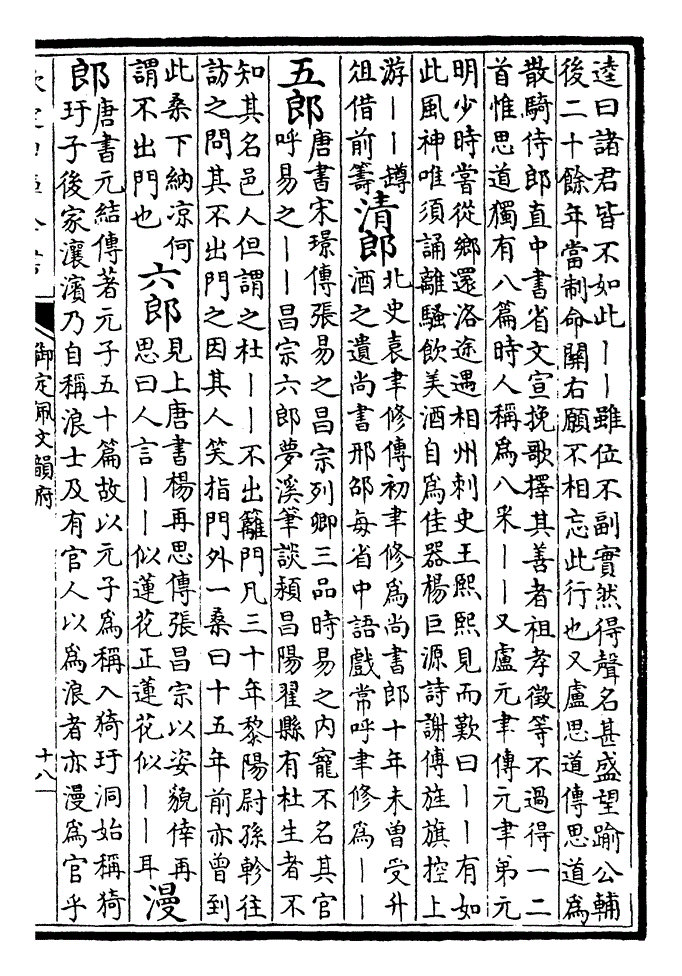 逵曰諸君皆不如此——雖位不副實然得聲名甚盛望踰公輔
後二十餘年當制命關右願不相忘此行也又盧思道傳思道為
散騎侍郎直中書省文宣挽歌擇其善者祖孝徵等不過得一二
首惟思道獨有八篇時人稱為八米——又盧元聿傳元聿弟元
明少時嘗從鄉還洛途遇相州刺史王熙熙見而歎曰——有如
此風神唯須誦離騷飲美酒自為佳器楊巨源詩謝傅旌旗控上
游——罇
俎借前籌
清郎
北史袁聿修傳初聿修為尚書郎十年未曾受升
酒之遺尚書邢邵每省中語戲常呼聿修為——
五郎
唐書宋璟傳張易之昌宗列卿三品時易之內寵不名其官
呼易之——昌宗六郎夢溪筆談潁昌陽翟縣有杜生者不
知其名邑人但謂之杜——不出籬門凡三十年黎陽尉孫軫往
訪之問其不出門之因其人笑指門外一桑曰十五年前亦曾到
此桑下納凉何
謂不出門也
六郎
見上唐書楊再思傳張昌宗以姿貌倖再
思曰人言——似蓮花正蓮花似——耳
漫
郎
唐書元結傳著元子五十篇故以元子為稱入猗玗洞始稱猗
玗子後家瀼濱乃自稱浪士及有官人以為浪者亦漫為官乎
御定佩文韻府
十八